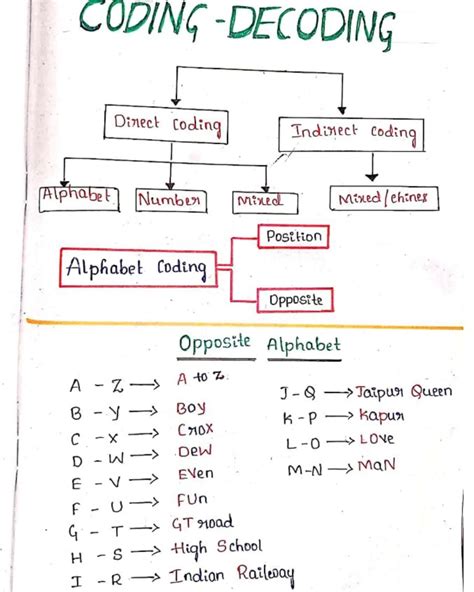 CODING-DECODING
Direct Coding
Indirect Coding
Alphabet
Number
Mixed
Mixed/chines
Position
Alphabet Coding
Opposite
Opposite Alphabet
A - Z → A to Z
B - Y → BOY
C - X → Crox
D - W → Dew
E - V → EVen
F - U → FUn
G - T → GT road
H - S → High School
I - R → Indian Railway
J-Q → Jaipur Queen
K-P → Kapur
L-O → LOVe
M-N → MaN